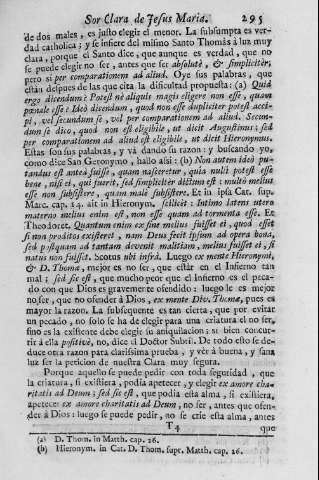 Sor Clara de Jesus Maria. 295
de dos males, es justo elegir el menor. La subsumpta es ver-
dad catholica; y se infiere del mismo Santo Thomàs à luz muy
clara, porque el Santo dice, que aunque es verdad, que no
se puede elegir no ser, antes que ser absolutè, & simpliciter,
pero si per comparationem ad aliud. Oye sus palabras, que
estàn despues de las que cita la dificultad propuesta: (a) Quid
ergo dicendum? Potest nè aliquis magis eligere non esse, quam
pœnale esse? Ideò dicendum, quod non esse dupliciter potest acci-
pi, vel secundum se, vel per comparationem ad aliud. Secun-
dum se dico, quod non est eligibile, ut dicit Augustinus; sed
per comparationem ad aliud est eligibile, ut dicit Hieronymus.
Estas son sus palabras, y và dando la razon: y buscando yo,
como dice San Geronymo, hallo asi: (b) Non autem ideò pu-
tandus est anteà fuisse, quam nasceretur, quia nulli potest esse
bene, nisi ei, qui fuerit, sed simpliciter dictum est: multò melius
esse non subsistere, quam malè subsistere. Et in ipsa Cat. supr.
Marc. cap. 14. ait in Hieronym. scilicit: Intimo latens utero
materno melius enim est, non esse quam ad tormenta esse. Et
Theodoret. Quantum enim ex fine melius fuisset ei, quod esset
si non proditor existeret, nam Deus fecit ipsum ad opera bona,
sed postquam ad tantam devenit malitiam, melius fuisset ei, si
natus non fuisset. Scotus ubi infrà. Luego ex mente Hieronymi,
& D. Thomæ, mejor es no ser, que estàr en el Infierno tan
mal; sed sic est, que mucho peor que el Infierno es el peca-
do con que Dios es gravemente ofendido: luego le es mejor
no ser, que no ofender à Dios, ex mente Div. Thomæ, pues es
mayor la razon. La subsequente es tan cierta, que por evitar
un pecado, no solo se ha de elegir para una criatura el no ser,
sino es la existente debe elegir su aniquilacion; si bien concur-
rir à ella positivè, no, dice el Doctor Subtil. De todo esto se de-
duce otra razon para clarissima prueba, y ver à buena, y sana
luz ser la peticion de nuestra Clara muy segura.
Porque aquello se puede pedir con toda seguridad, que
la criatura, si existiera, podia apetecer, y elegir ex amore cha-
ritatis ad Deum; sed sic est, que podia esta alma, si existiera,
apetecer ex amore charitatis ad Deum, no ser, antes que ofen-
der à Dios: luego se puede pedir, no se crie esta alma, antes
T 4 que
(a) D. Thom. in Matth. cap. 26.
(b) Hieronym. in Cat. D. Thom. supr. Matth. cap. 26.